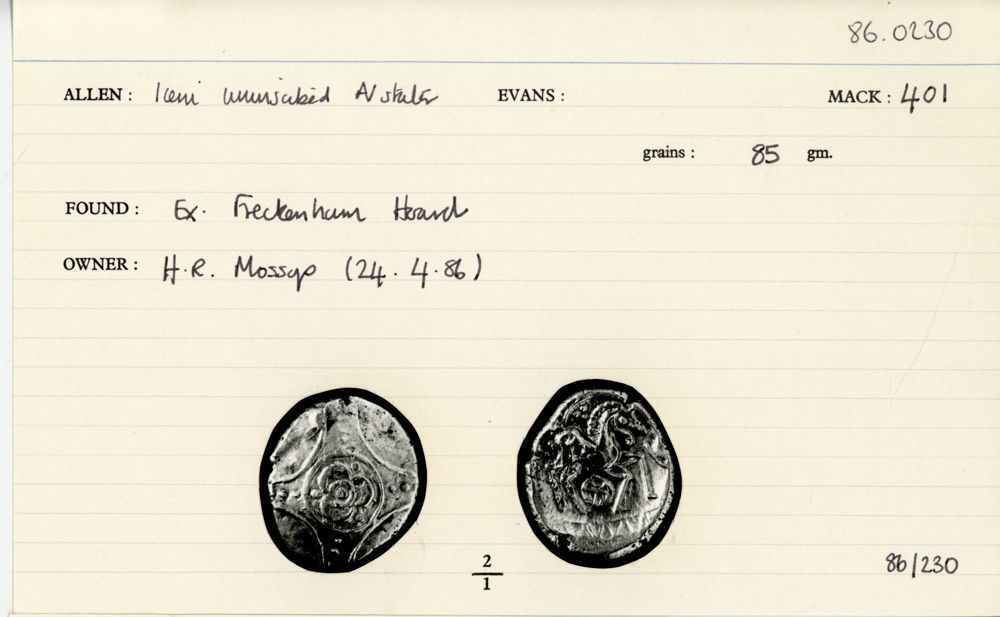 86.0230
ALLEN: Iceni uninscribed AV stater EVANS: MACK: 401
grains: 85 gm.
FOUND: Ex. Freckenham Hoard
OWNER: H.R. Mossop (24.4.86)
2
1
86/230